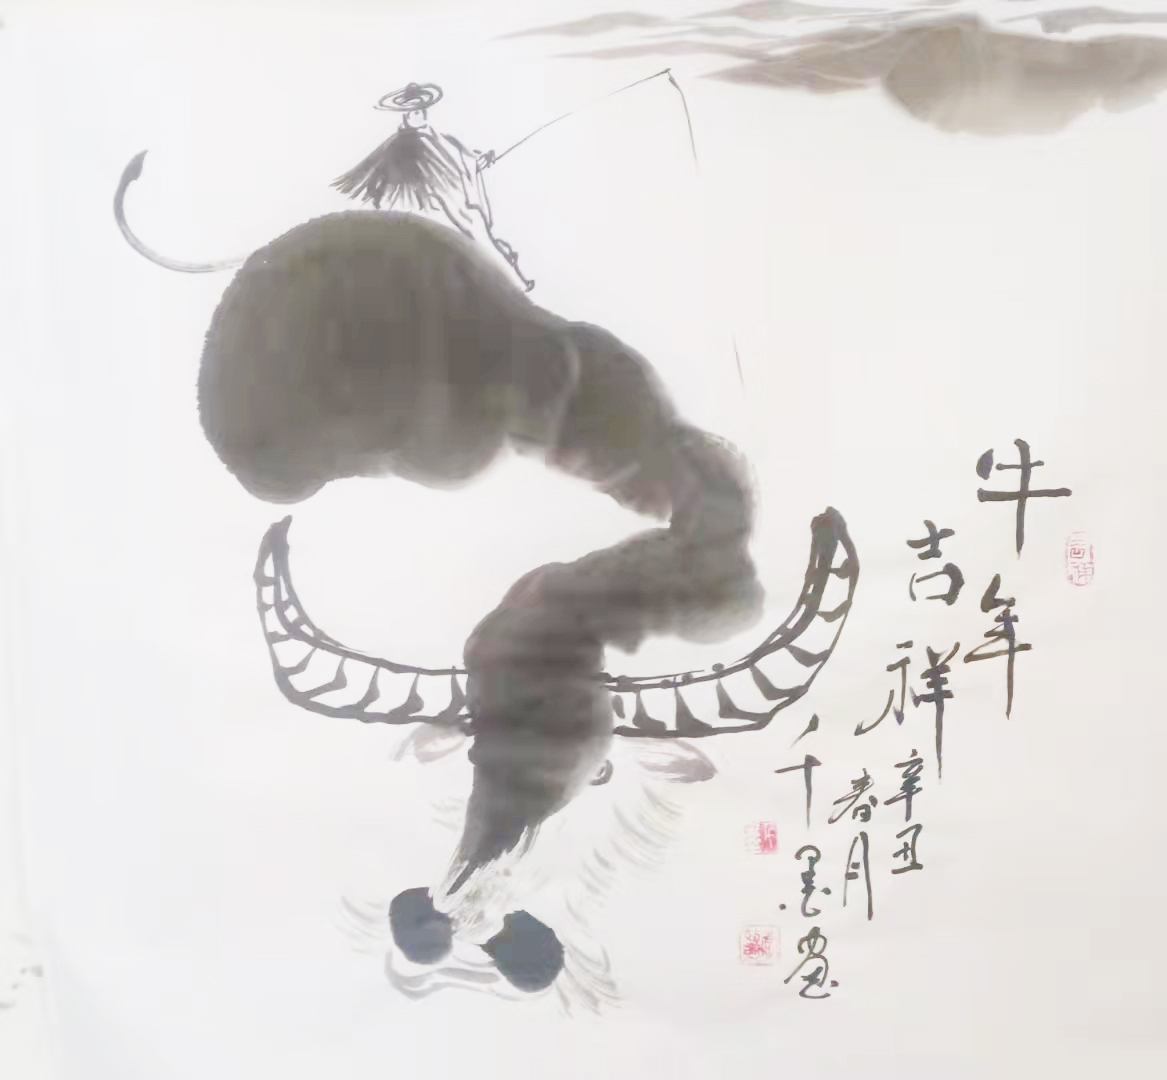 牛年
吉祥
辛丑
春月
千墨画